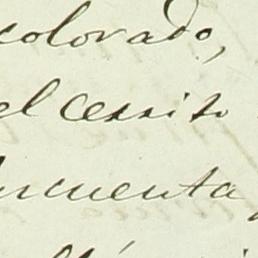 colorado,
el cerrito
ncuenta,